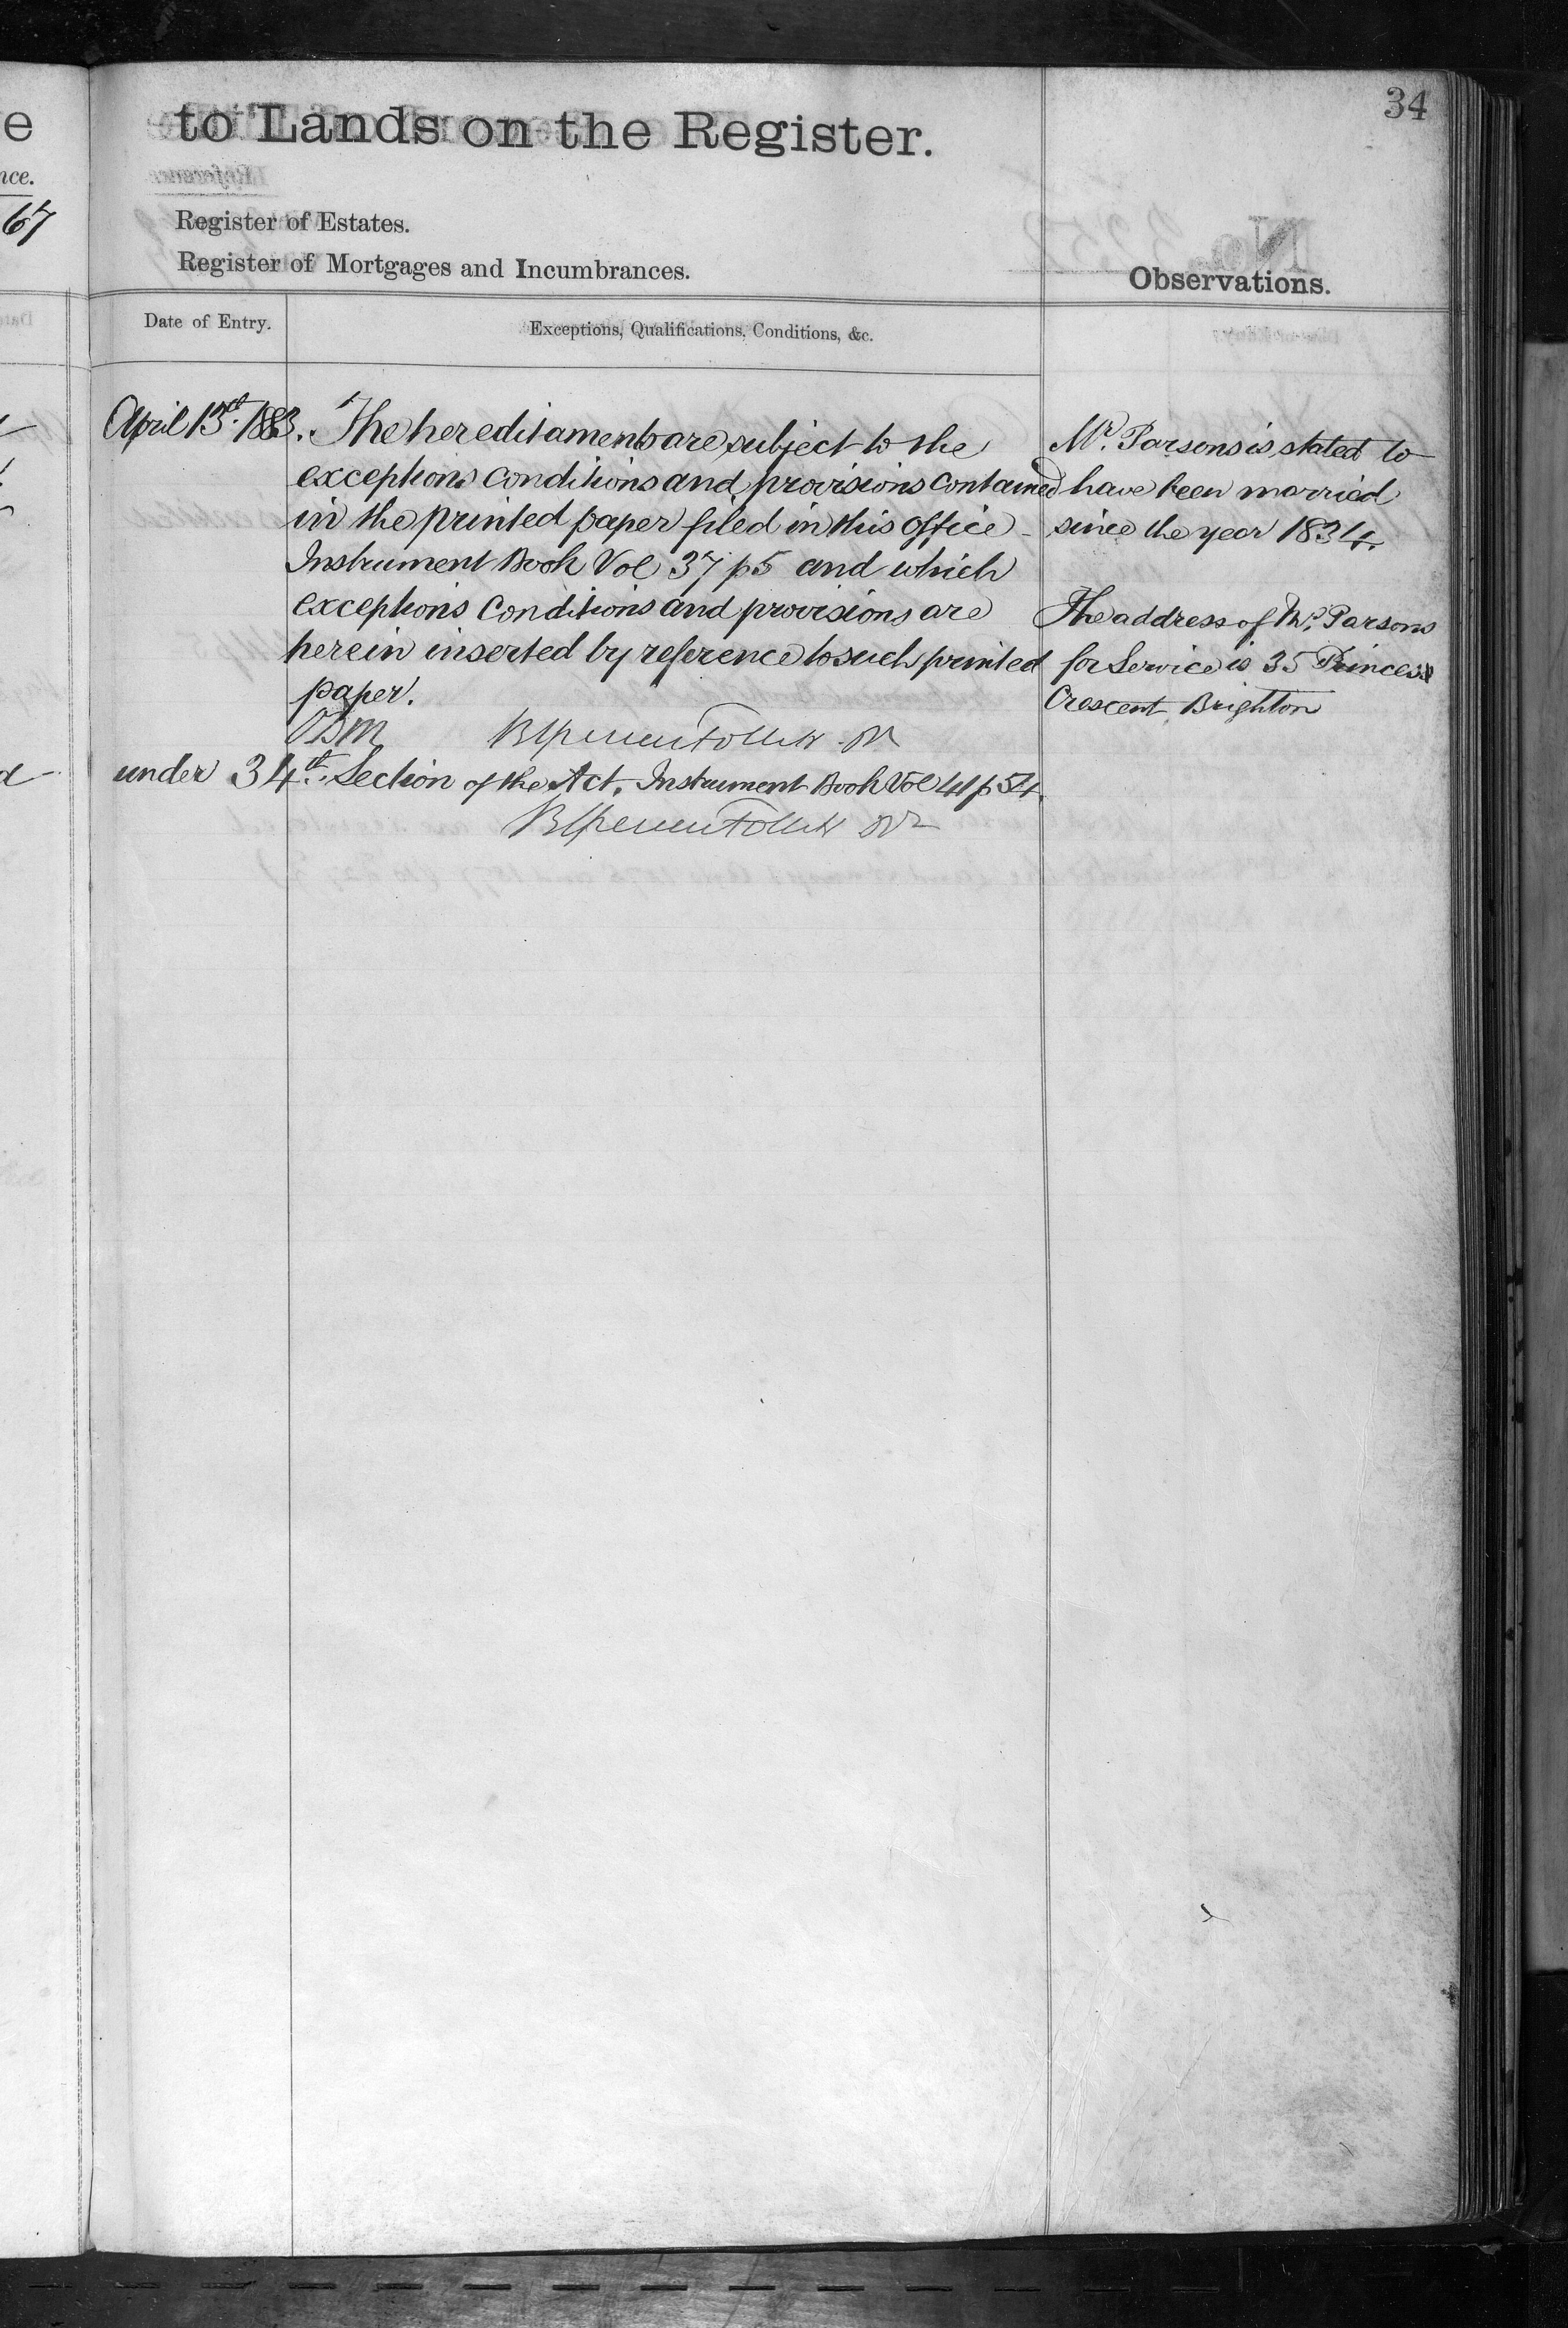 34
to Lands on the Register.
Register of Estates.
Register of Mortgages and Incumbrances.
Observations.
Date of Entry.
Exceptions, Qualifications, Conditions, &c.
April 13th. 1883. The hereditaments are subject to the
exceptions conditions and provisions contained
in the printed paper filed in this Office
Instrument Book Vol 37 p 5 and which
exceptions conditions and provisions are
herein inserted by reference to such printed
paper.
under 34th. Section of the Act. Instrument Book Vol 41 p 54.
Mr. Parsons is stated to
have been married
since the year 1834.
The address of Mr. Parsons
for Service is 35 Princess
Crescent Brighton
67
nce.